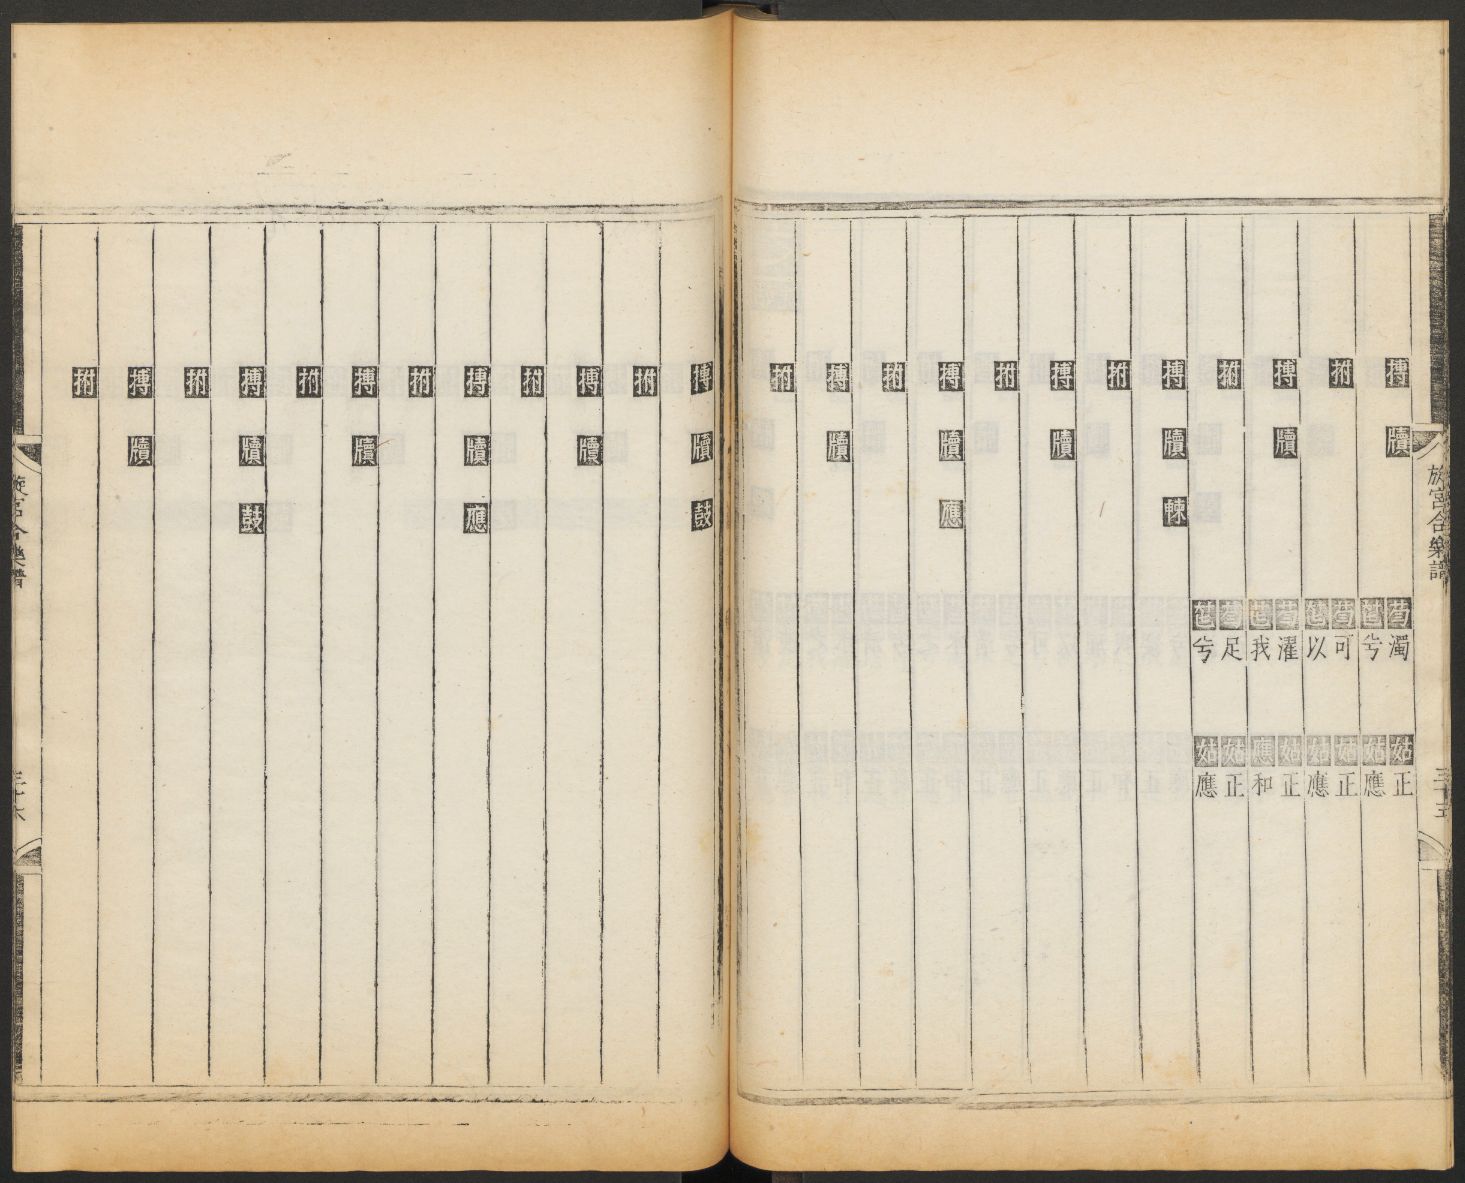 旋宮合樂譜 三十五
搏 牘
濁 姑 正
兮 姑 應
拊
可 姑 正
以 姑 應
搏 牘
濯 姑 正
我 應 和
拊
足 姑 正
兮 姑 應
搏 牘 朄
拊
搏 牘
拊
搏 牘 應
拊
搏 牘
拊
搏 牘 鼓
拊
搏 牘
拊
搏 牘 應
拊
搏 牘
拊
搏 牘 鼓
拊
搏 牘
拊
旋宮合樂譜 三十六